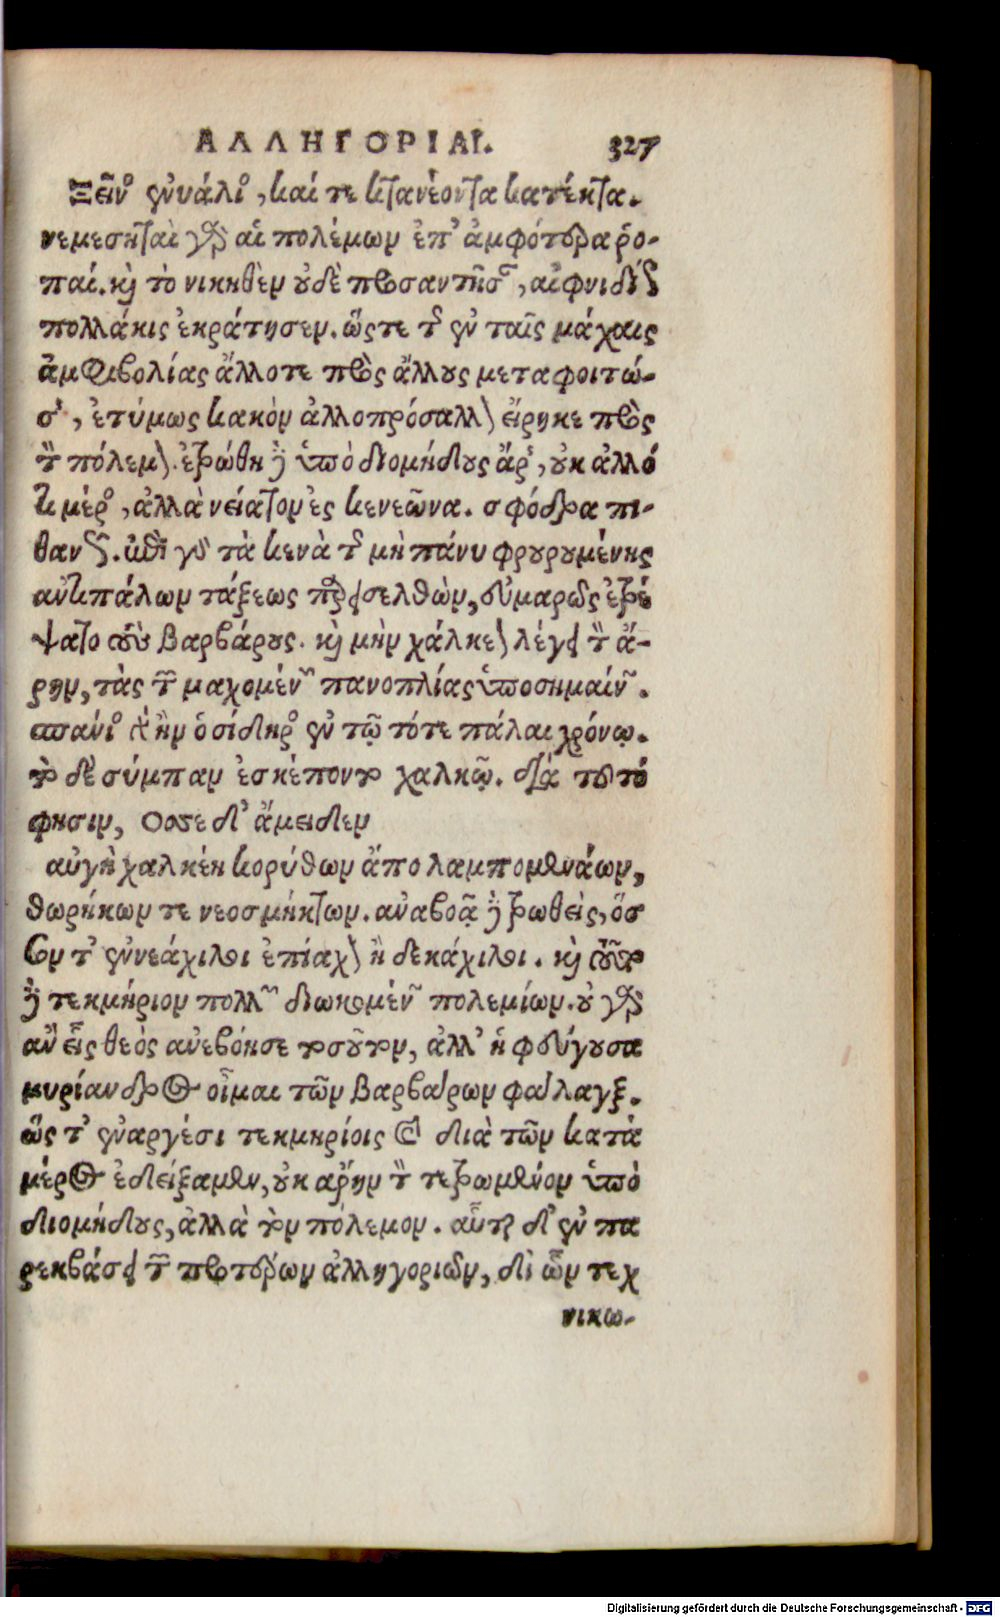 ΑΛΛΗΓΟΡΙΑΙ. 327
Ξεῖνος ἐνυάλιος, καί τε κτανέοντα κατέκτα.
νεμεσηταὶ γὰρ αἱ πολέμων ἐπ' ἀμφότερα ῥο-
παί. καὶ τὸ νικηθὲν οὐδὲ προσαντῆσαν, αἰφνιδίως
πολλάκις ἐκράτησεν. ὥστε τῆς ἐν ταῖς μάχαις
ἀμφιβολίας ἄλλοτε πρὸς ἄλλους μεταφοιτώ-
σης, ἐτύμως κακὸν ἀλλοπρόσαλλον εἴρηκε πρὸς
τὸν πόλεμον. ἐτρώθη δὲ ὑπὸ διομήδους ἄρης, οὐκ ἀλλό
τι μέρος, ἀλλὰ νείατον ἐς κενεῶνα. σφόδρα πι-
θανῶς. ἐπὶ γὰρ τὰ κενὰ τῆς μὴ πάνυ φρουρουμένης
ἀντιπάλων τάξεως παρεισελθὼν, εὐμαρῶς ἐτρέ
ψατο τοὺς βαρβάρους. καὶ μὴν χάλκεον λέγει τὸν ἄ-
ρην, τὰς τῶν μαχομένων πανοπλίας ὑποσημαίνων.
σπάνιος γὰρ ἦν ὁ σίδηρος ἐν τῷ τότε πάλαι χρόνῳ.
τὸ δὲ σύμπαν ἐσκέποντο χαλκῷ. διὰ τοῦτό
φησιν, Ὄσσε δ' ἄμερδεν
αὐγὴ χαλκέη κορύθων ἄπο λαμπομενάων,
θωρήκων τε νεοσμήκτων. ἀναβοᾷ δὲ τρωθεὶς, ὅσ
σον τ' ἐννεάχιλοι ἐπίαχον ἢ δεκάχιλοι. καὶ τοῦτο
δὲ τεκμήριον πολλῶν διωκομένων πολεμίων. οὐ γὰρ
ἂν εἷς θεὸς ἀνεβόησε τοσοῦτον, ἀλλ' ἡ φεύγουσα
μυρίανδρος οἶμαι τῶν βαρβάρων φάλαγξ.
ὥς τ' ἐναργέσι τεκμηρίοις καὶ διὰ τῶν κατὰ
μέρος ἐδείξαμεν, οὐκ ἄρην τὸν τετρωμένον ὑπὸ
διομήδους, ἀλλὰ τὸν πόλεμον. αὗται δ' ἐν πα
ρεκβάσει τῶν προτέρων ἀλληγοριῶν, δι' ὧν τεχ
νικω-
Digitalisierung gefördert durch die Deutsche Forschungsgemeinschaft - DFG